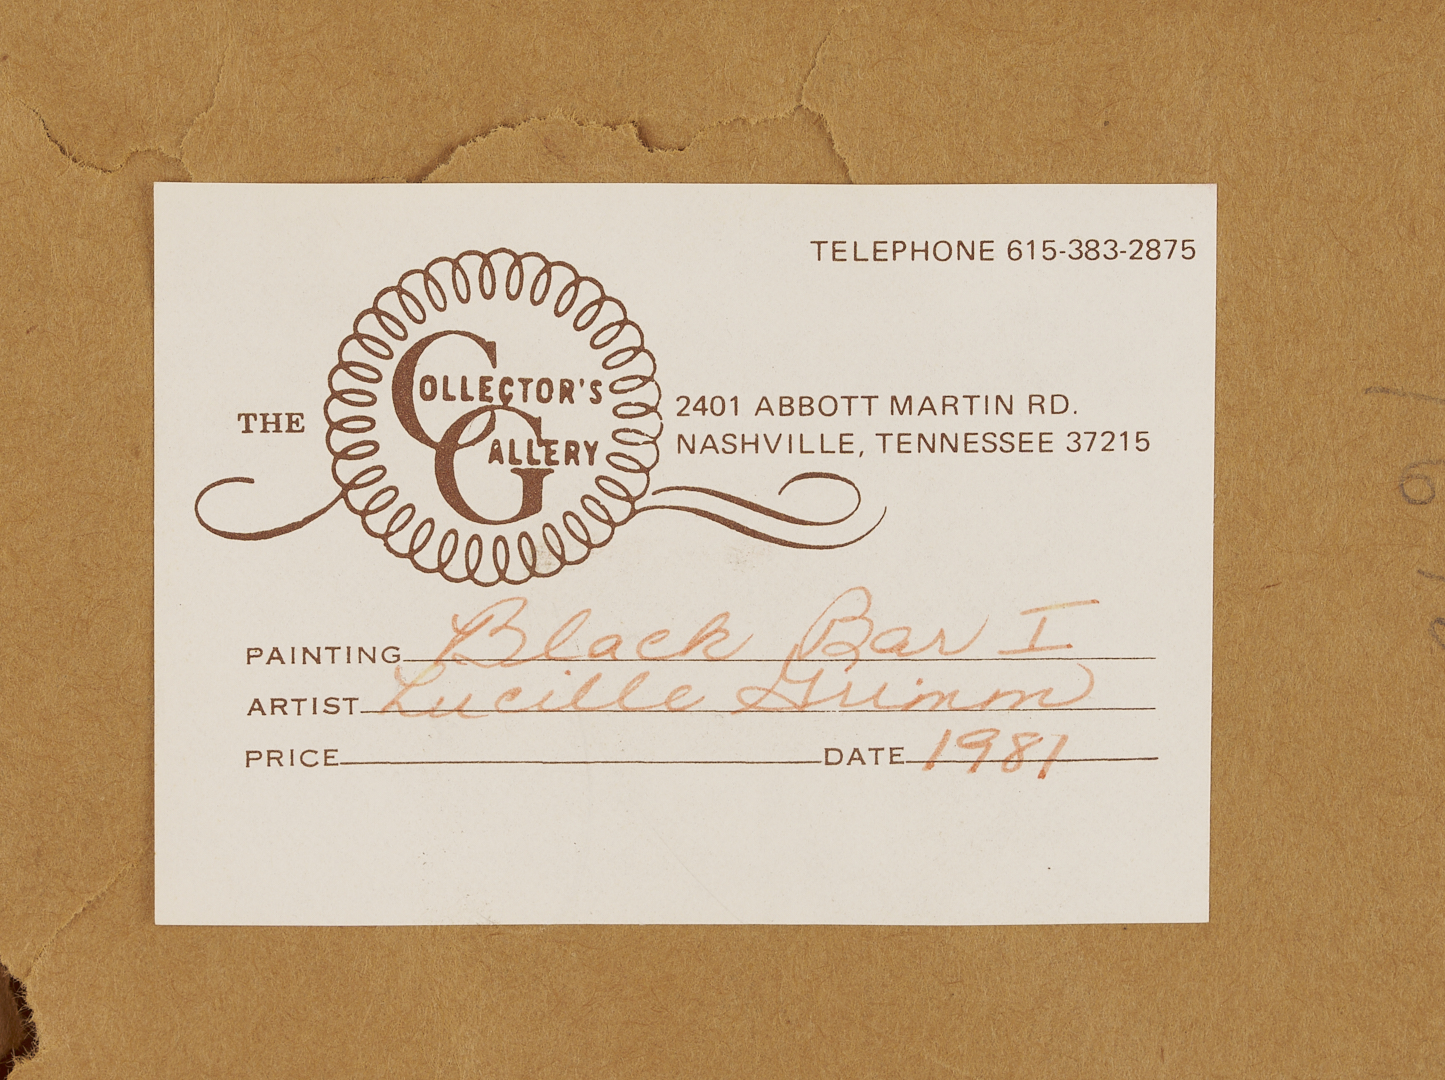 TELEPHONE 615-383-2875
THE
COLLECTOR'S
GALLERY
2401 ABBOTT MARTIN RD.
NASHVILLE, TENNESSEE 37215
PAINTING Black Bar I
ARTIST Lucille Grimm
PRICE DATE 1981